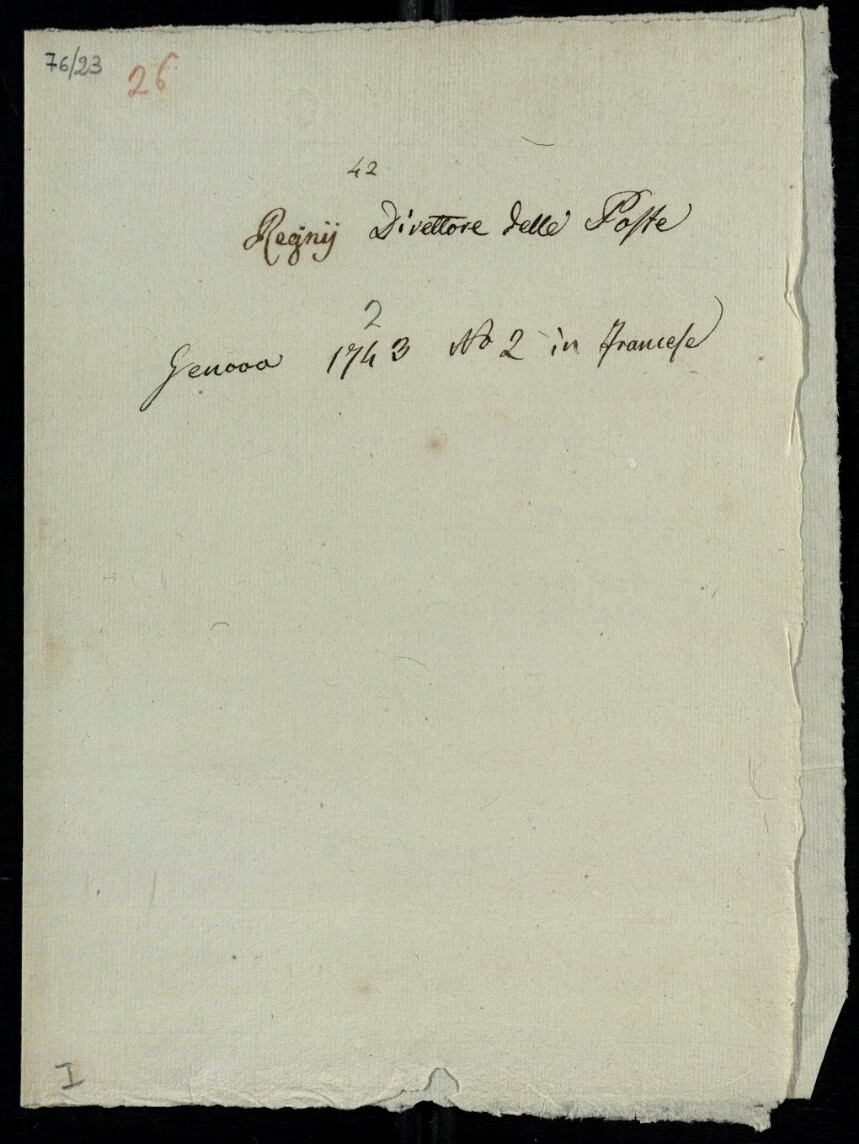 76/23 26
42
Regnij Direttore delle Poste
2
Genova 1743 No 2 in francese
I